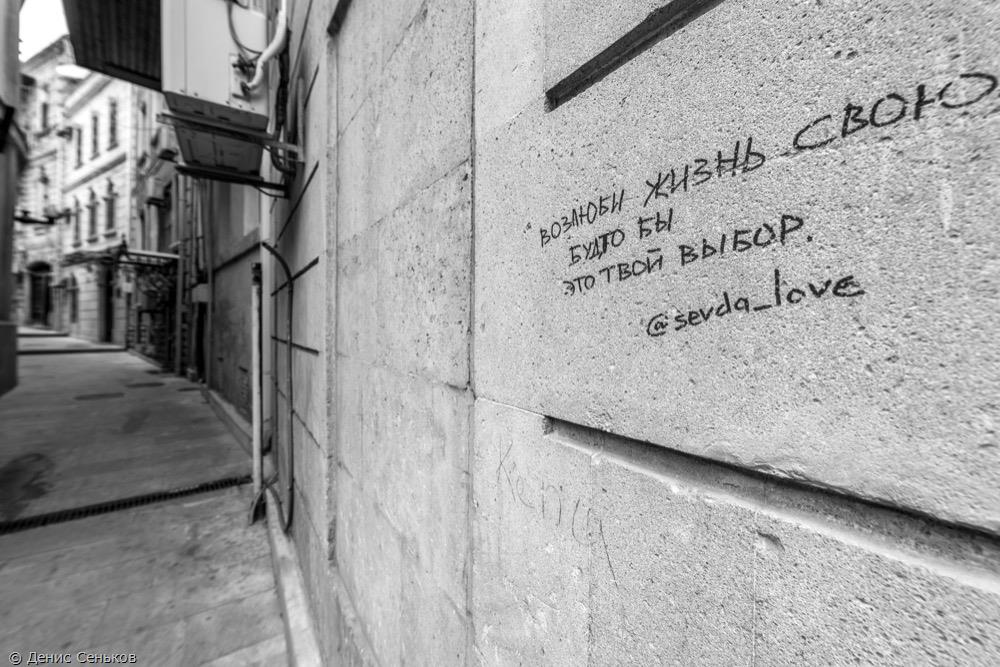 "ВОЗЛЮБИ ЖИЗНЬ СВОЮ,
БУДТО БЫ
ЭТО ТВОЙ ВЫБОР.
@sevda_love
© Денис Сеньков